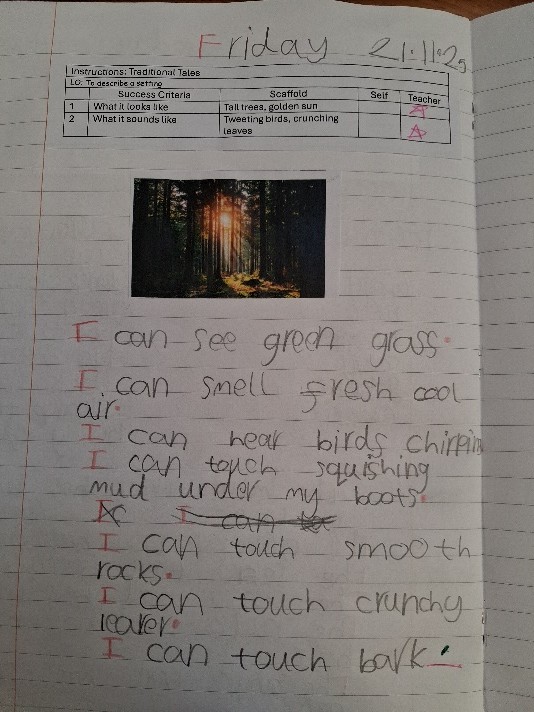 Friday 21.11.25
Instructions: Traditional Tales
LO: To describe a setting
Success Criteria Scaffold Self Teacher
1 What it looks like Tall trees, golden sun
2 What it sounds like Tweeting birds, crunching
leaves
I can see green grass.
I can smell fresh cool
air.
I can hear birds chirpin
I can touch squishing
mud under my boots.
I can
I can touch smooth
rocks.
I can touch crunchy
leaver.
I can touch bark.